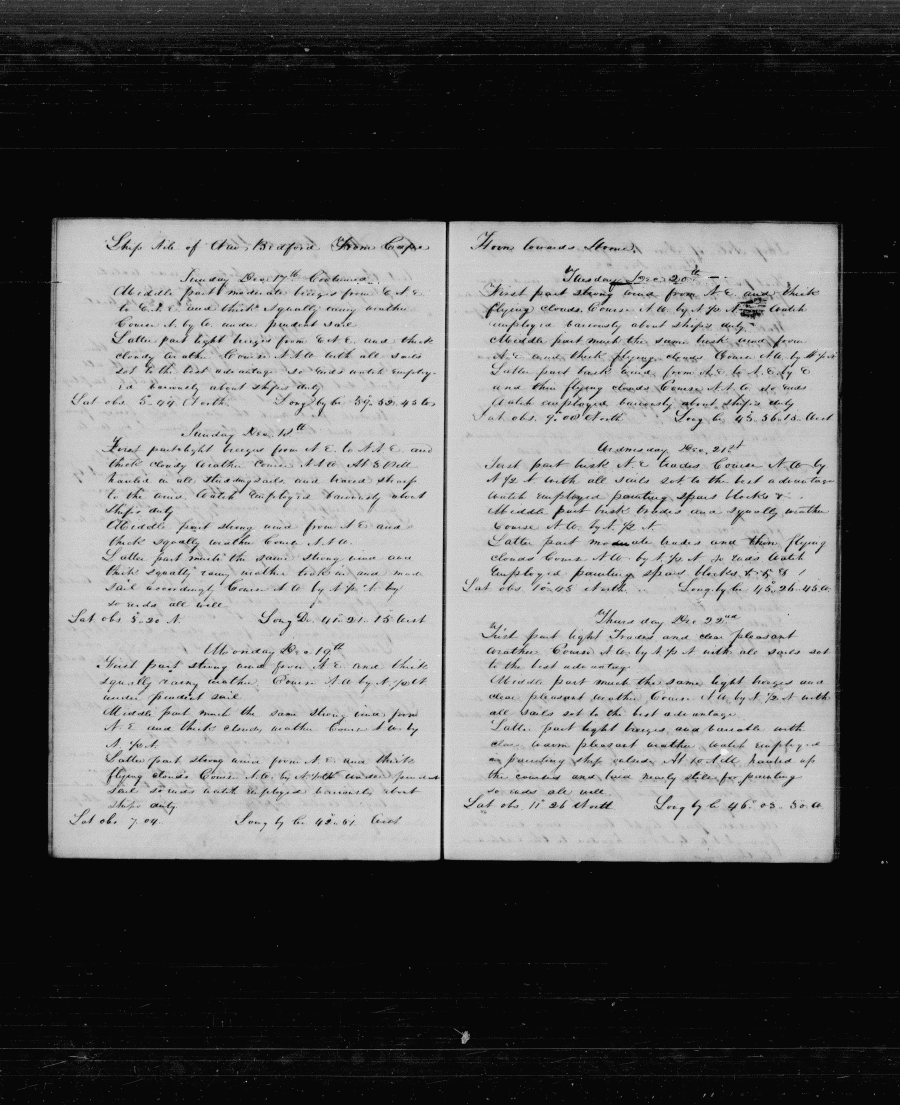 Ship Nile of New Bedford From Cape
Sunday Dec 17th Continued
Middle part moderate breezes from E.N.E.
to E.S.E and thick squally rainy weather
Course N by W. under prudent sail
Latter part light breezes from E.N.E. and thick
cloudy weather Course N.N.W with all sails
set to the best advantage so ends watch employ-
ed variously about ships duty
Lat obs. 5-44 North Long by Cr 39-52-45 W
Sunday Dec. 18th
First part light breezes from N E. to N.N.E. and
thick cloudy weather Course N.N.W At 3 P.M
hauled in all studdingsails and braced sharp
to the wind. Watch Employed variously about
Ships duty
Middle part strong wind from N E and
thick squally weather Course N.N.W.
Latter part much the same strong wind and
thick squally rainy weather took in and made
sail accordingly Course N W by N ½ N by
so ends all well
Lat obs 5-20 N. Long Dr. 41-21-15 West
Monday Dec 19th
First part strong wind from N E and thick
squally rainy weather Course N.W by N. ½ N
under prudent sail
Middle part much the same strong wind from
N. E and thick cloudy weather Course N W. by
N. ½ N.
Latter part strong wind from N. E and thick
flying clouds Course N.W. by N ½ N under prudent
sail so ends watch employed variously about
ships duty
Lat obs 7.04 Long by Cr 42-51 West
Horn towards Home.
Tuesday Dec. 20th
First part strong wind from N. E. and thick
flying clouds. Course N W. by N ½ N Watch
employed variously about ships duty
Middle part much the same brisk wind from
N. E and thick flying clouds Course N.W. by N ½ N
Latter part brisk wind from N.E. to N.E. by E
and thin flying clouds Course N.N.W so ends
Watch employed variously about ships duty
Lat obs. 9-00 North Long by Cr 45-36-15 West
Wednesday Dec. 21st
First part brisk N. E trades Course N.W by
N ½ N with all sails set to the best advantage
watch employed painting spars blocks &
Middle part brisk trades and squally weather
Course N.W. by N. ½ N
Latter part moderate trades and thin flying
clouds Course N W. by N. ½ N so ends Watch
Employed painting spars blocks & & &
Lat obs 10-43 North Long by Cr 45-26-45 W
Thursday Dec 22nd
First part light Trades and clear pleasant
weather Course N.W. by N ½ N with all sails set
to the best advantage
Middle part much the same light breezes and
clear pleasant weather Course N.W by N ½ N with
all sails set to the best advantage
Latter part light breezes and variable with
clear warm pleasant weather watch employed
in painting ship outside. At 10 A.M. hauled up
the courses and laid nearly still for painting
so ends all well
Lat obs 11-26 North Long by Cr 46-03-30 W.